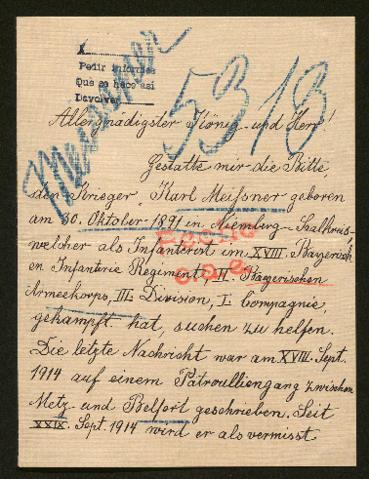 X
Pedir informes
Que se hace así
Devolver
Meissner
5318
Allergnädigster König und Herr!
Gestatte mir die Bitte,
den Krieger, Karl Meißner geboren
am 30. Oktober 1891 in Niemberg-Saalkreis,
welcher als Infanterist im XVIII. Bayerisch
en Infanterie Regiment, II. Bayerischen
Armeekorps, III. Division, I. Compagnie,
gekämpft hat, suchen zu helfen.
Die letzte Nachricht war am XVIII. Sept.
1914 auf einem Patroulliengang zwischen
Metz und Belfort geschrieben. Seit
XXIX. Sept. 1914 wird er als vermisst